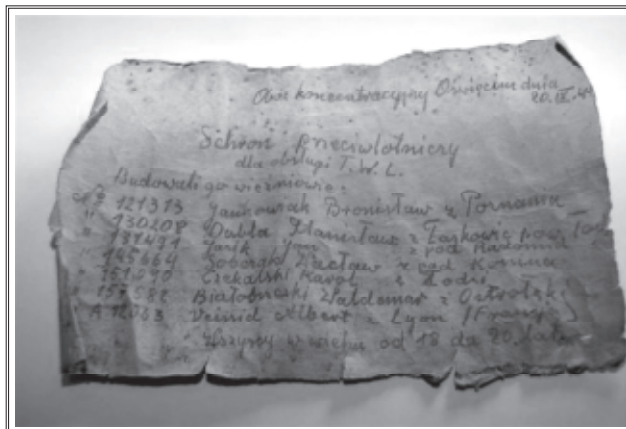 Obóz koncentracyjny Oświęcim dnia
20.IX.44
Schron przeciwlotniczy
dla obsługi T.W.L.
Budowali go więźniowie:
№ 121313 Jankowiak Bronisław z Poznania
" 130208 Dubla Stanisław z Łaskowic pow.
" Jasik Jan z pod Radomia
" 145664 Sobczak Wacław z pod Konina
" Czekalski Karol z Łodzi
" 157582 Białobrzeski Waldemar z Ostrołęki
A 12063 Veissid Albert z Lyon /Francja/
Wszyscy w wieku od 18 do 20 lat.